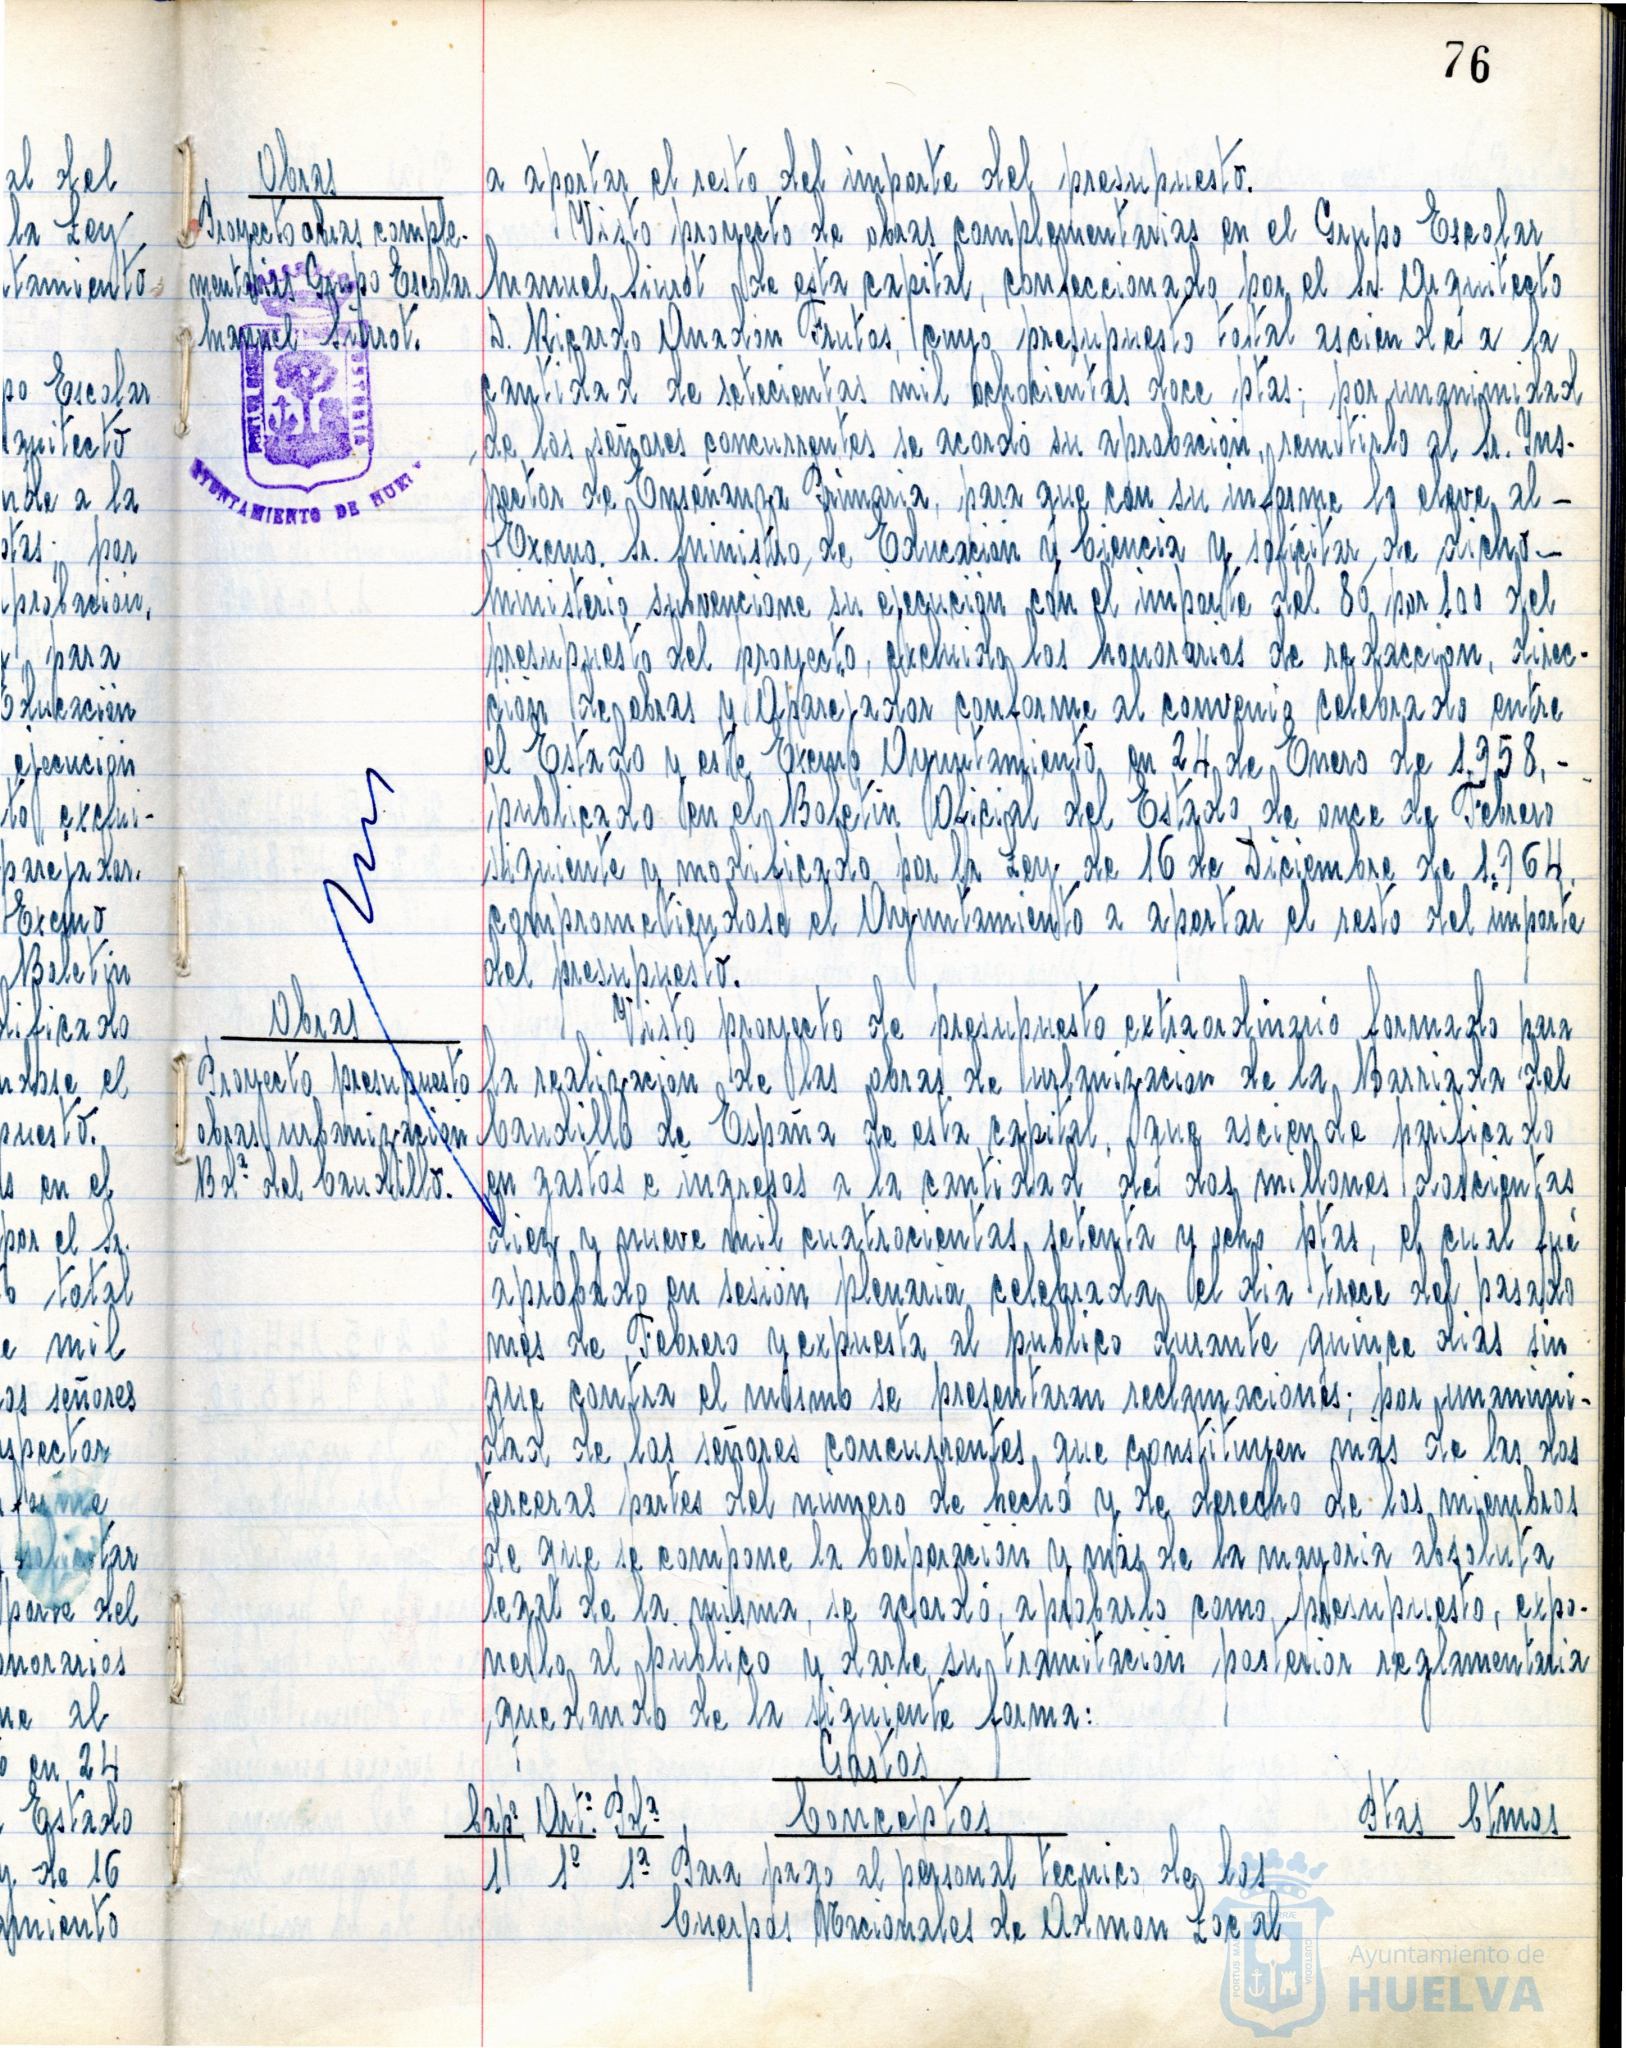 76
al del
la Ley
tamiento
po Escolar
quitecto
nde a la
ptas; por
probación,
para
Educación
ejecución
to exclui-
parejador.
Excmo
Boletín
dificado
ndose el
puesto.
s en el
por el Sr.
o total
e mil
os señores
spector
forme
solicitar
porte del
onorarios
me al
o en 24
Estado
y de 16
amiento
Obras
Proyecto obras comple-
mentarias Grupo Escolar
Manuel Siurot.
AYUNTAMIENTO DE HUE
Obras
Proyecto presupuesto
obras urbanización
Bdª del Caudillo.
a aportar el resto del importe del presupuesto.
Visto proyecto de obras complementarias en el Grupo Escolar
Manuel Siurot de esta capital, confeccionado por el Sr. Arquitecto
D. Ricardo Anadón Frutos, cuyo presupuesto total asciende a la
cantidad de setecientas mil ochocientas doce ptas; por unanimidad
de los señores concurrentes se acordó su aprobación, remitirlo al Sr. Ins-
pector de Enseñanza Primaria, para que con su informe lo eleve al -
Excmo. Sr. Ministro de Educación y Ciencia y solicitar de dicho -
Ministerio subvencione su ejecución con el importe del 80 por 100 del
presupuesto del proyecto, excluido los honorarios de redacción, direc-
ción de obras y Aparejador conforme al convenio celebrado entre
el Estado y este Excmo Ayuntamiento en 24 de Enero de 1.958, -
publicado en el Boletín Oficial del Estado de once de Febrero
siguiente y modificado por la Ley de 16 de Diciembre de 1.964,
comprometiendose el Ayuntamiento a aportar el resto del importe
del presupuesto.
Visto proyecto de presupuesto extraordinario formado para
la realización de las obras de urbanización de la Barriada del
Caudillo de España de esta capital, que asciende purificado
en gastos e ingresos a la cantidad de dos millones doscientas
diez y nueve mil cuatrocientas setenta y ocho ptas, el cual fué
aprobado en sesión plenaria celebrada el dia trece del pasado
mes de Febrero y expuesta al publico durante quince dias sin
que contra el mismo se presentaran reclamaciones; por unanimi-
dad de los señores concurrentes que constituyen más de las dos
terceras partes del número de hecho y de derecho de los miembros
de que se compone la Corporación y más de la mayoria absoluta
legal de la misma, se acordó, aprobarlo como presupuesto, expo-
nerlo al público y darle su tramitación posterior reglamentaria
quedando de la siguiente forma:
Gastos
Capº Artº Pdª Conceptos Ptas Ctmos
1 1º 1ª Para pago al personal tecnico de los
Cuerpos Nacionales de Admon Local
PORTUS MARIS CUSTODIA
Ayuntamiento de
HUELVA